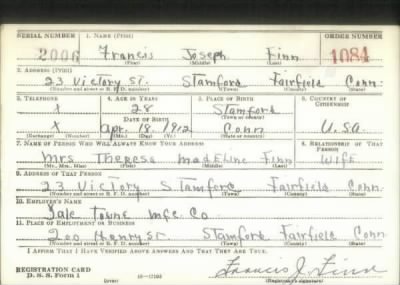 SERIAL NUMBER 1. NAME (Print) ORDER NUMBER
2006 Francis Joseph Finn 1084
(First) (Middle) (Last)
2. ADDRESS (Print)
23 Victory St. Stamford Fairfield Conn.
(Number and street or R. F. D. number) (Town) (County) (State)
3. TELEPHONE 4. AGE IN YEARS 5. PLACE OF BIRTH 6. COUNTRY OF CITIZENSHIP
X 28 Stamford
DATE OF BIRTH (Town or county)
X Apr. 18, 1912 Conn U.S.A
(Exchange) (Number) (Mo.) (Day) (Yr.) (State or country)
7. NAME OF PERSON WHO WILL ALWAYS KNOW YOUR ADDRESS 8. RELATIONSHIP OF THAT PERSON
Mrs Theresa Madeline Finn Wife
(Mr., Mrs., Miss) (First) (Middle) (Last)
9. ADDRESS OF THAT PERSON
23 Victory Stamford Fairfield Conn
(Number and street or R. F. D. number) (Town) (County) (State)
10. EMPLOYER'S NAME
Yale Towne Mfg. Co.
11. PLACE OF EMPLOYMENT OR BUSINESS
200 Henry St. Stamford Fairfield Conn
(Number and street or R. F. D. number) (Town) (County) (State)
I AFFIRM THAT I HAVE VERIFIED ABOVE ANSWERS AND THAT THEY ARE TRUE.
REGISTRATION CARD
D. S. S. Form 1 (over) Francis J. Finn
(Registrant's signature)